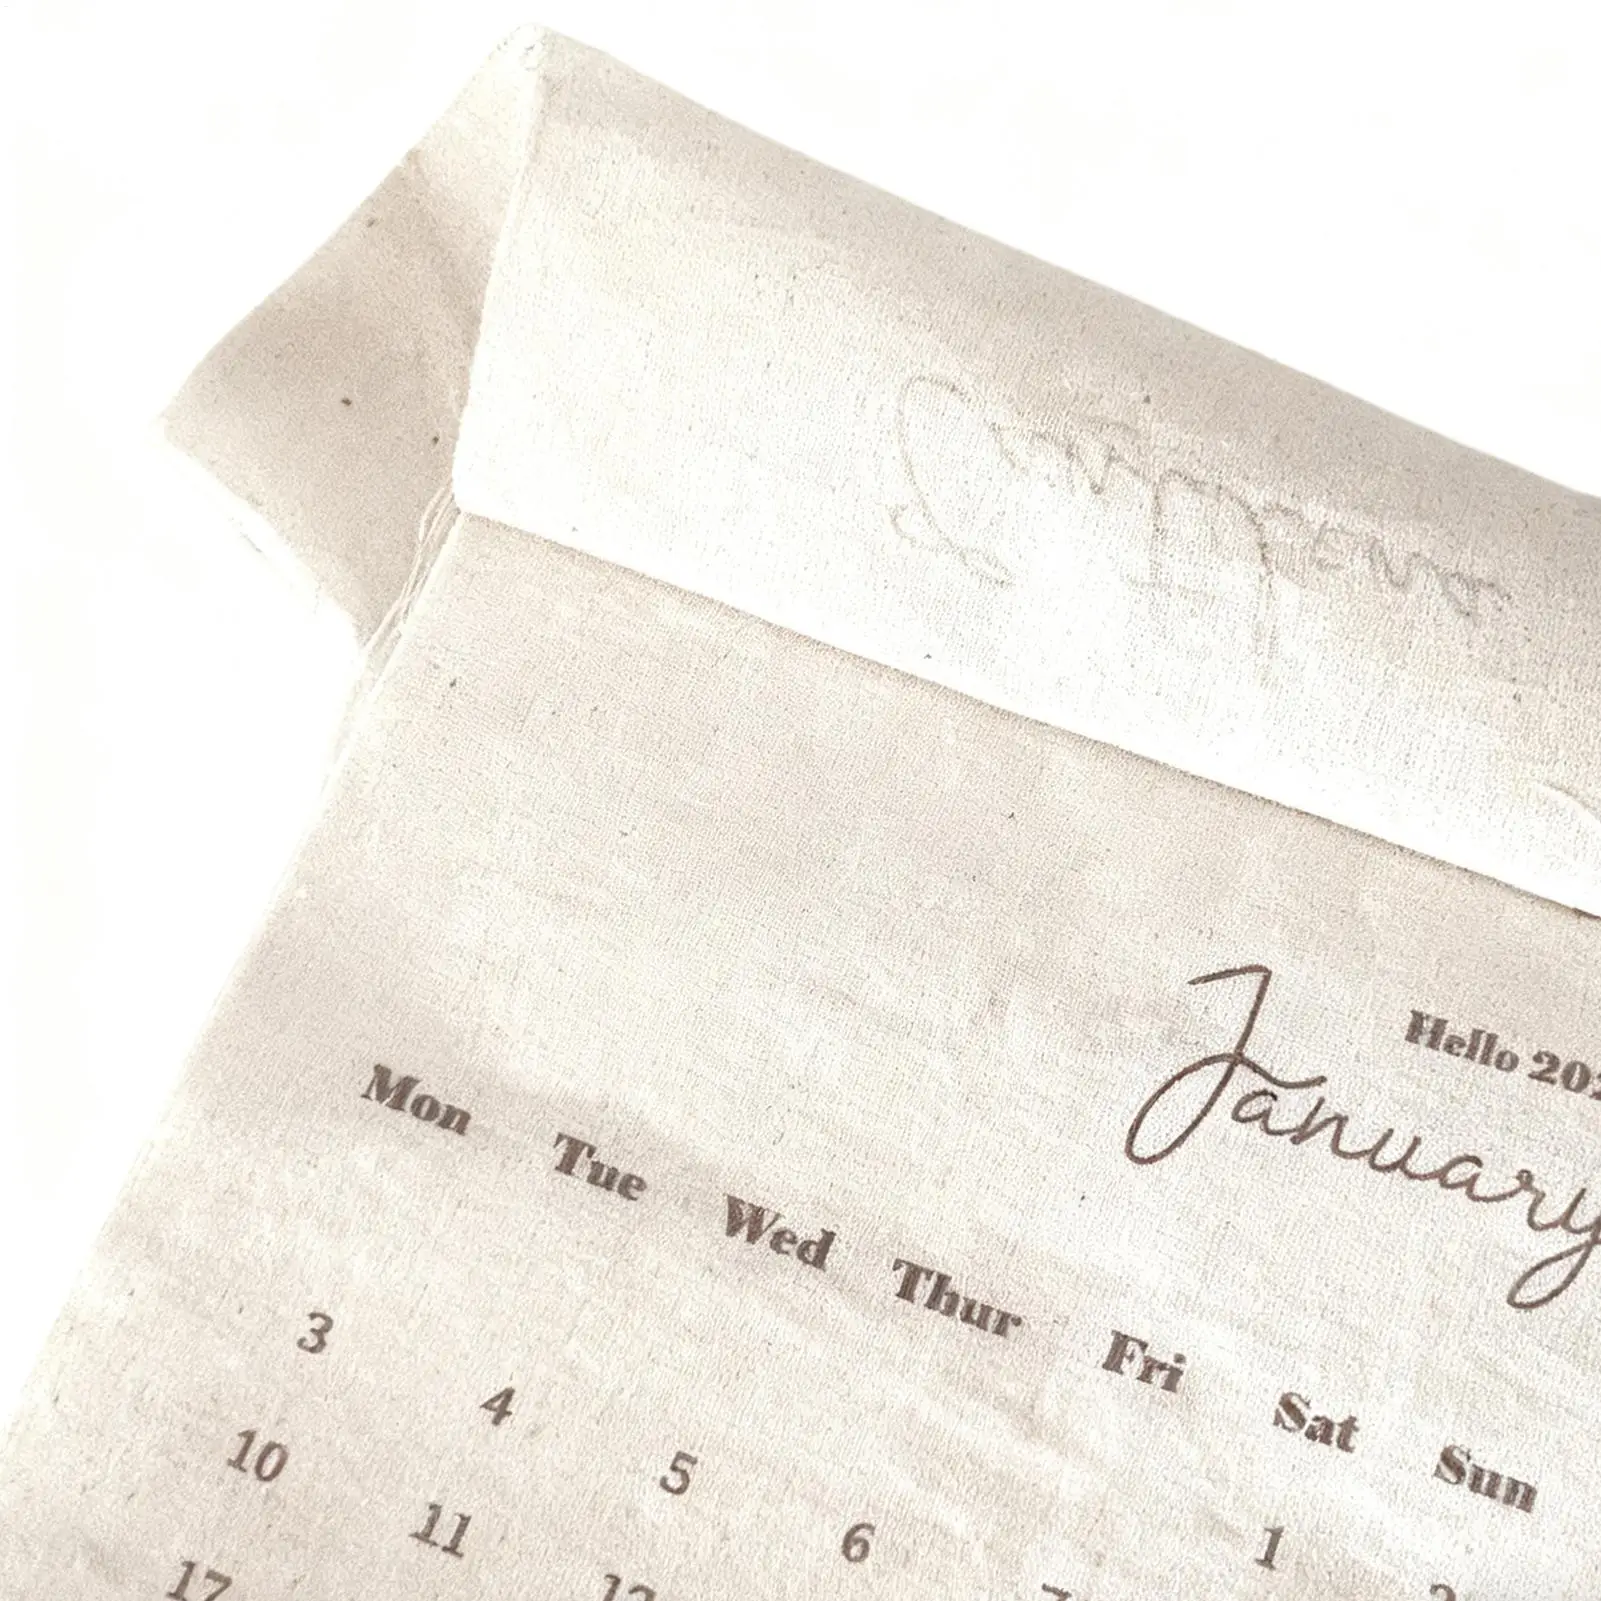 Hello 202
January
Mon Tue Wed Thur Fri Sat Sun
1 2
3 4 5 6 7
10 11 12
17